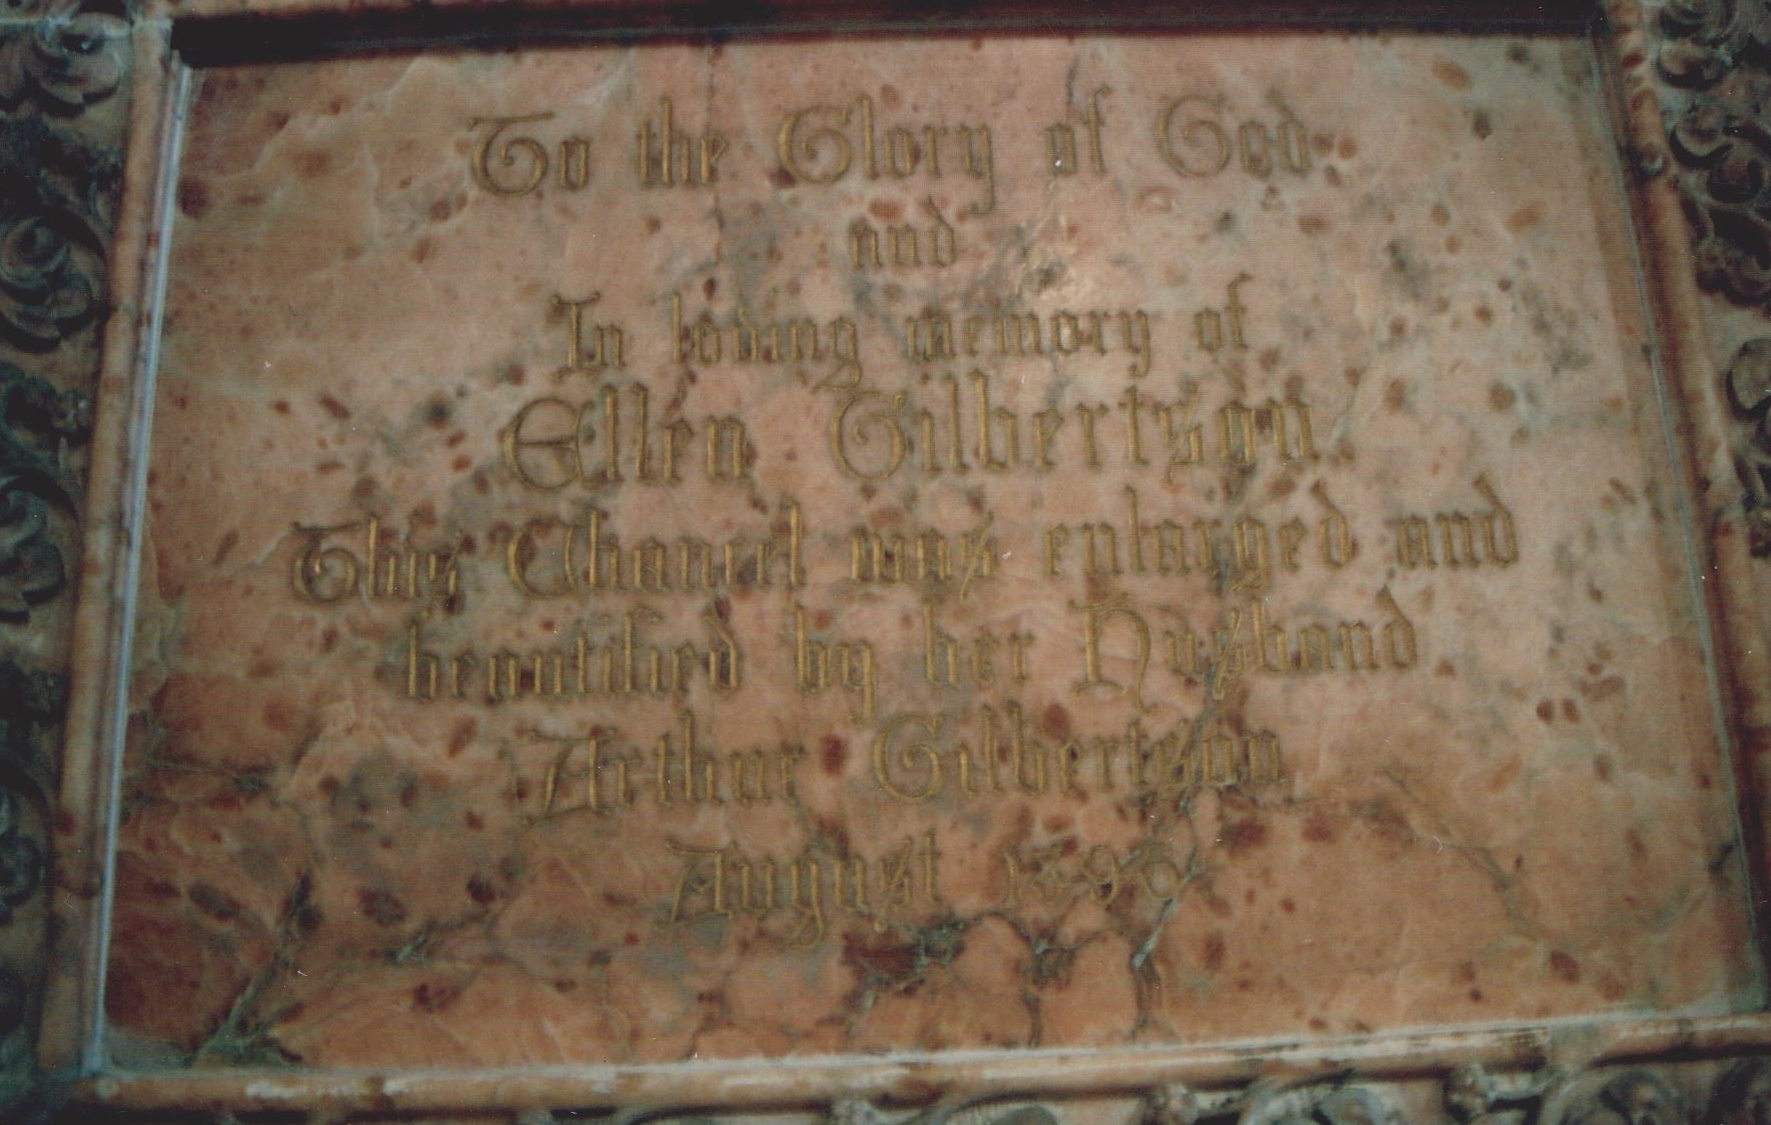 To the Glory of God
and
In loving memory of
Ellen Gilbertson.
This Chancel was enlarged and
beautified by her Husband
Arthur Gilbertson
August 1896